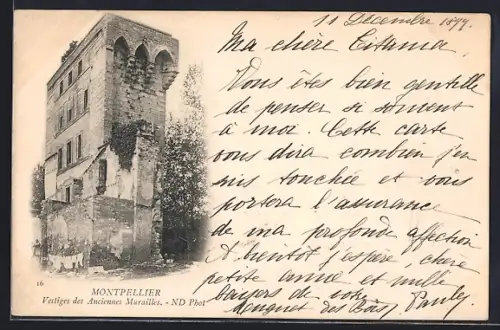 11 Décembre 1899.
Ma chère Titania,
Vous êtes bien gentille
de penser si souvent
à moi. Cette carte
vous dira combien j'en
suis touchée et vous
portera l'assurance
de ma profonde affection
A bientôt j'espère chère
petite amie et mille
baisers de votre
Pauley
16
MONTPELLIER
Vestiges des Anciennes Murailles. - ND Phot